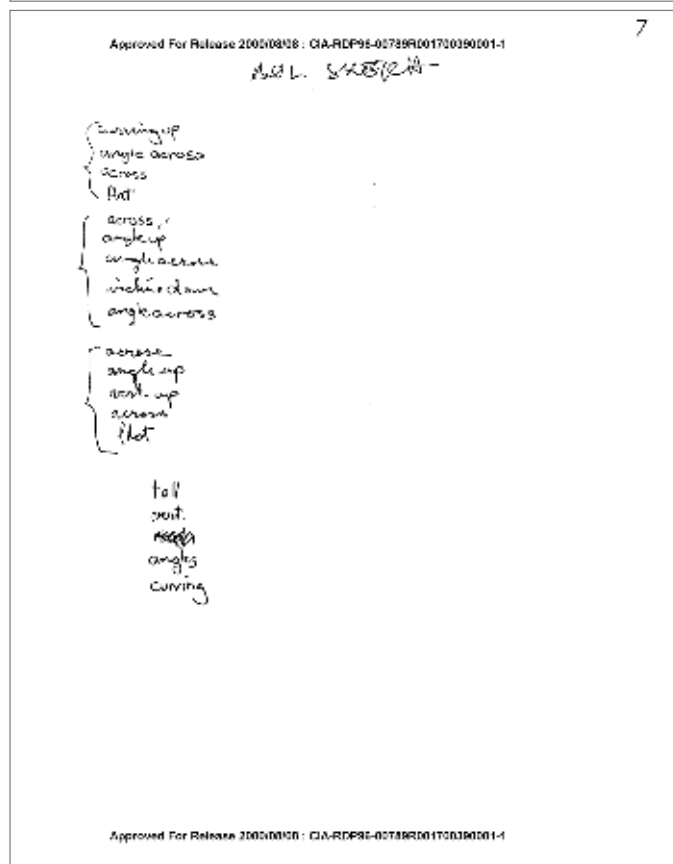 7
Approved For Release 2000/08/08 : CIA-RDP96-00789R001700390001-1
SKETCH
curving up
angle across
across
flat
across
angle up
angle across
down
angle across
across
angle up
vert. up
across
flat
tall
vert.
angles
curving
Approved For Release 2000/08/08 : CIA-RDP96-00789R001700390001-1